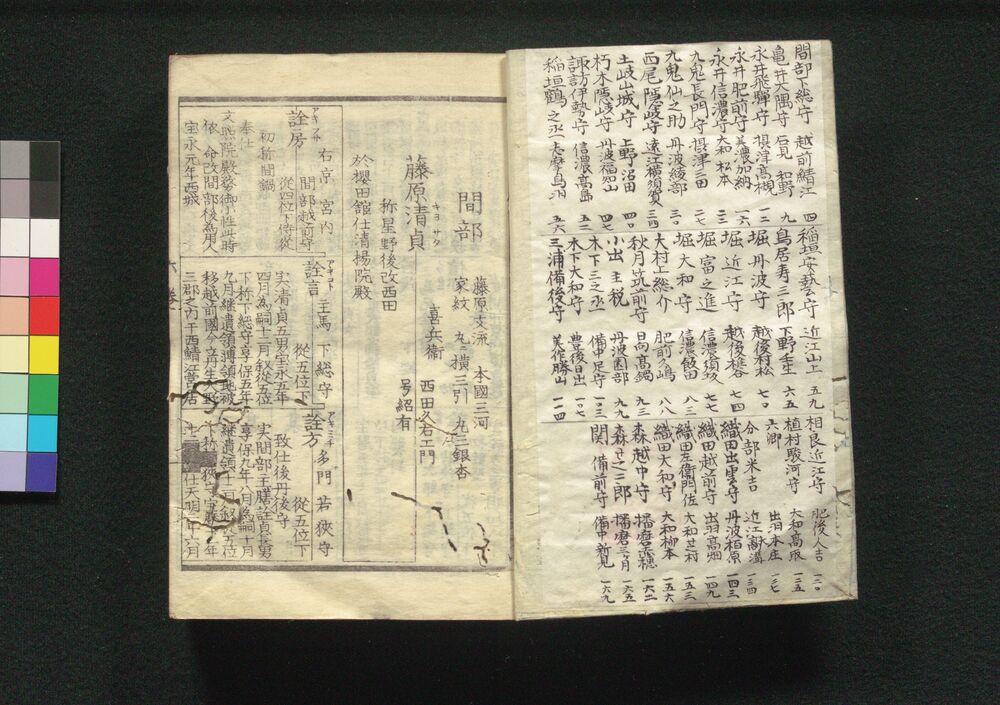 間部下総守 越前鯖江 四
亀井大隅守 石見和野 九
永井飛騨守 摂津高槻 一二
永井肥前守 美濃加納 一六
永井信濃守 大和松本 二三
九鬼長門守 摂津三田 二七
九鬼仙之助 丹波綾部 三〇
西尾隠岐守 遠江横須賀 三四
土岐山城守 上野沼田 四〇
朽木隠岐守 丹波福知山 四七
諏訪伊勢守 信濃高島 五一
稲垣鶴之丞 志摩鳥羽 五六
稲垣安藝守 近江山上 五九
鳥居寿三郎 下野壬生 六五
堀丹波守 越後村松 七〇
堀近江守 越後椎谷 七四
堀富之進 信濃須坂 七七
堀大和守 信濃飯田 八三
大村上総介 肥前大嶋 八八
秋月筑前守 日向高鍋 九三
小出主税 丹波園部 九九
木下三之丞 備中足守 一〇三
木下大和守 豊後日出 一〇七
三浦備後守 美作勝山 一一四
相良近江守 肥後人吉 一二〇
植村駿河守 大和高取 一二五
六郷 出羽本庄 一二七
分部米吉 近江 一三四
織田出雲守 丹波柏原 一四三
織田越前守 出羽高畑 一四九
織田左衛門佐 大和芝村 一五三
織田大和守 大和柳本 一五六
森越中守 播磨赤穂 一六二
森 播磨三月 一六五
関備前守 備中新見 一六九
間部
藤原支流 本國三河
家紋 丸ノ横三引 丸ニ三銀杏
藤原清貞
キヨサタ
喜兵衛 西田久右エ門
号紹有
称星野後改西田
於櫻田舘仕清楊院殿
詮房
アキフサ
右京 宮内
間部越前守
従四位下侍従
初称間鍋
奉仕
文照院殿勢御小性此時
依 命改間部後為用人
宝永元年西城
詮言
主馬 下総守
従五位下
実清貞五男宝永五年
四月為嗣十二月叙従五位
下称下総守享保五年
九月継遺領轉領地被
移越前國今立丹生
三郡之内干西鯖江営居
詮方
アキミチ
多門 若狭守
従五位下
致仕後丹後守
実間部主膳詮貞長男
享保九年八月為嗣十月
継遺領十二月叙従五位